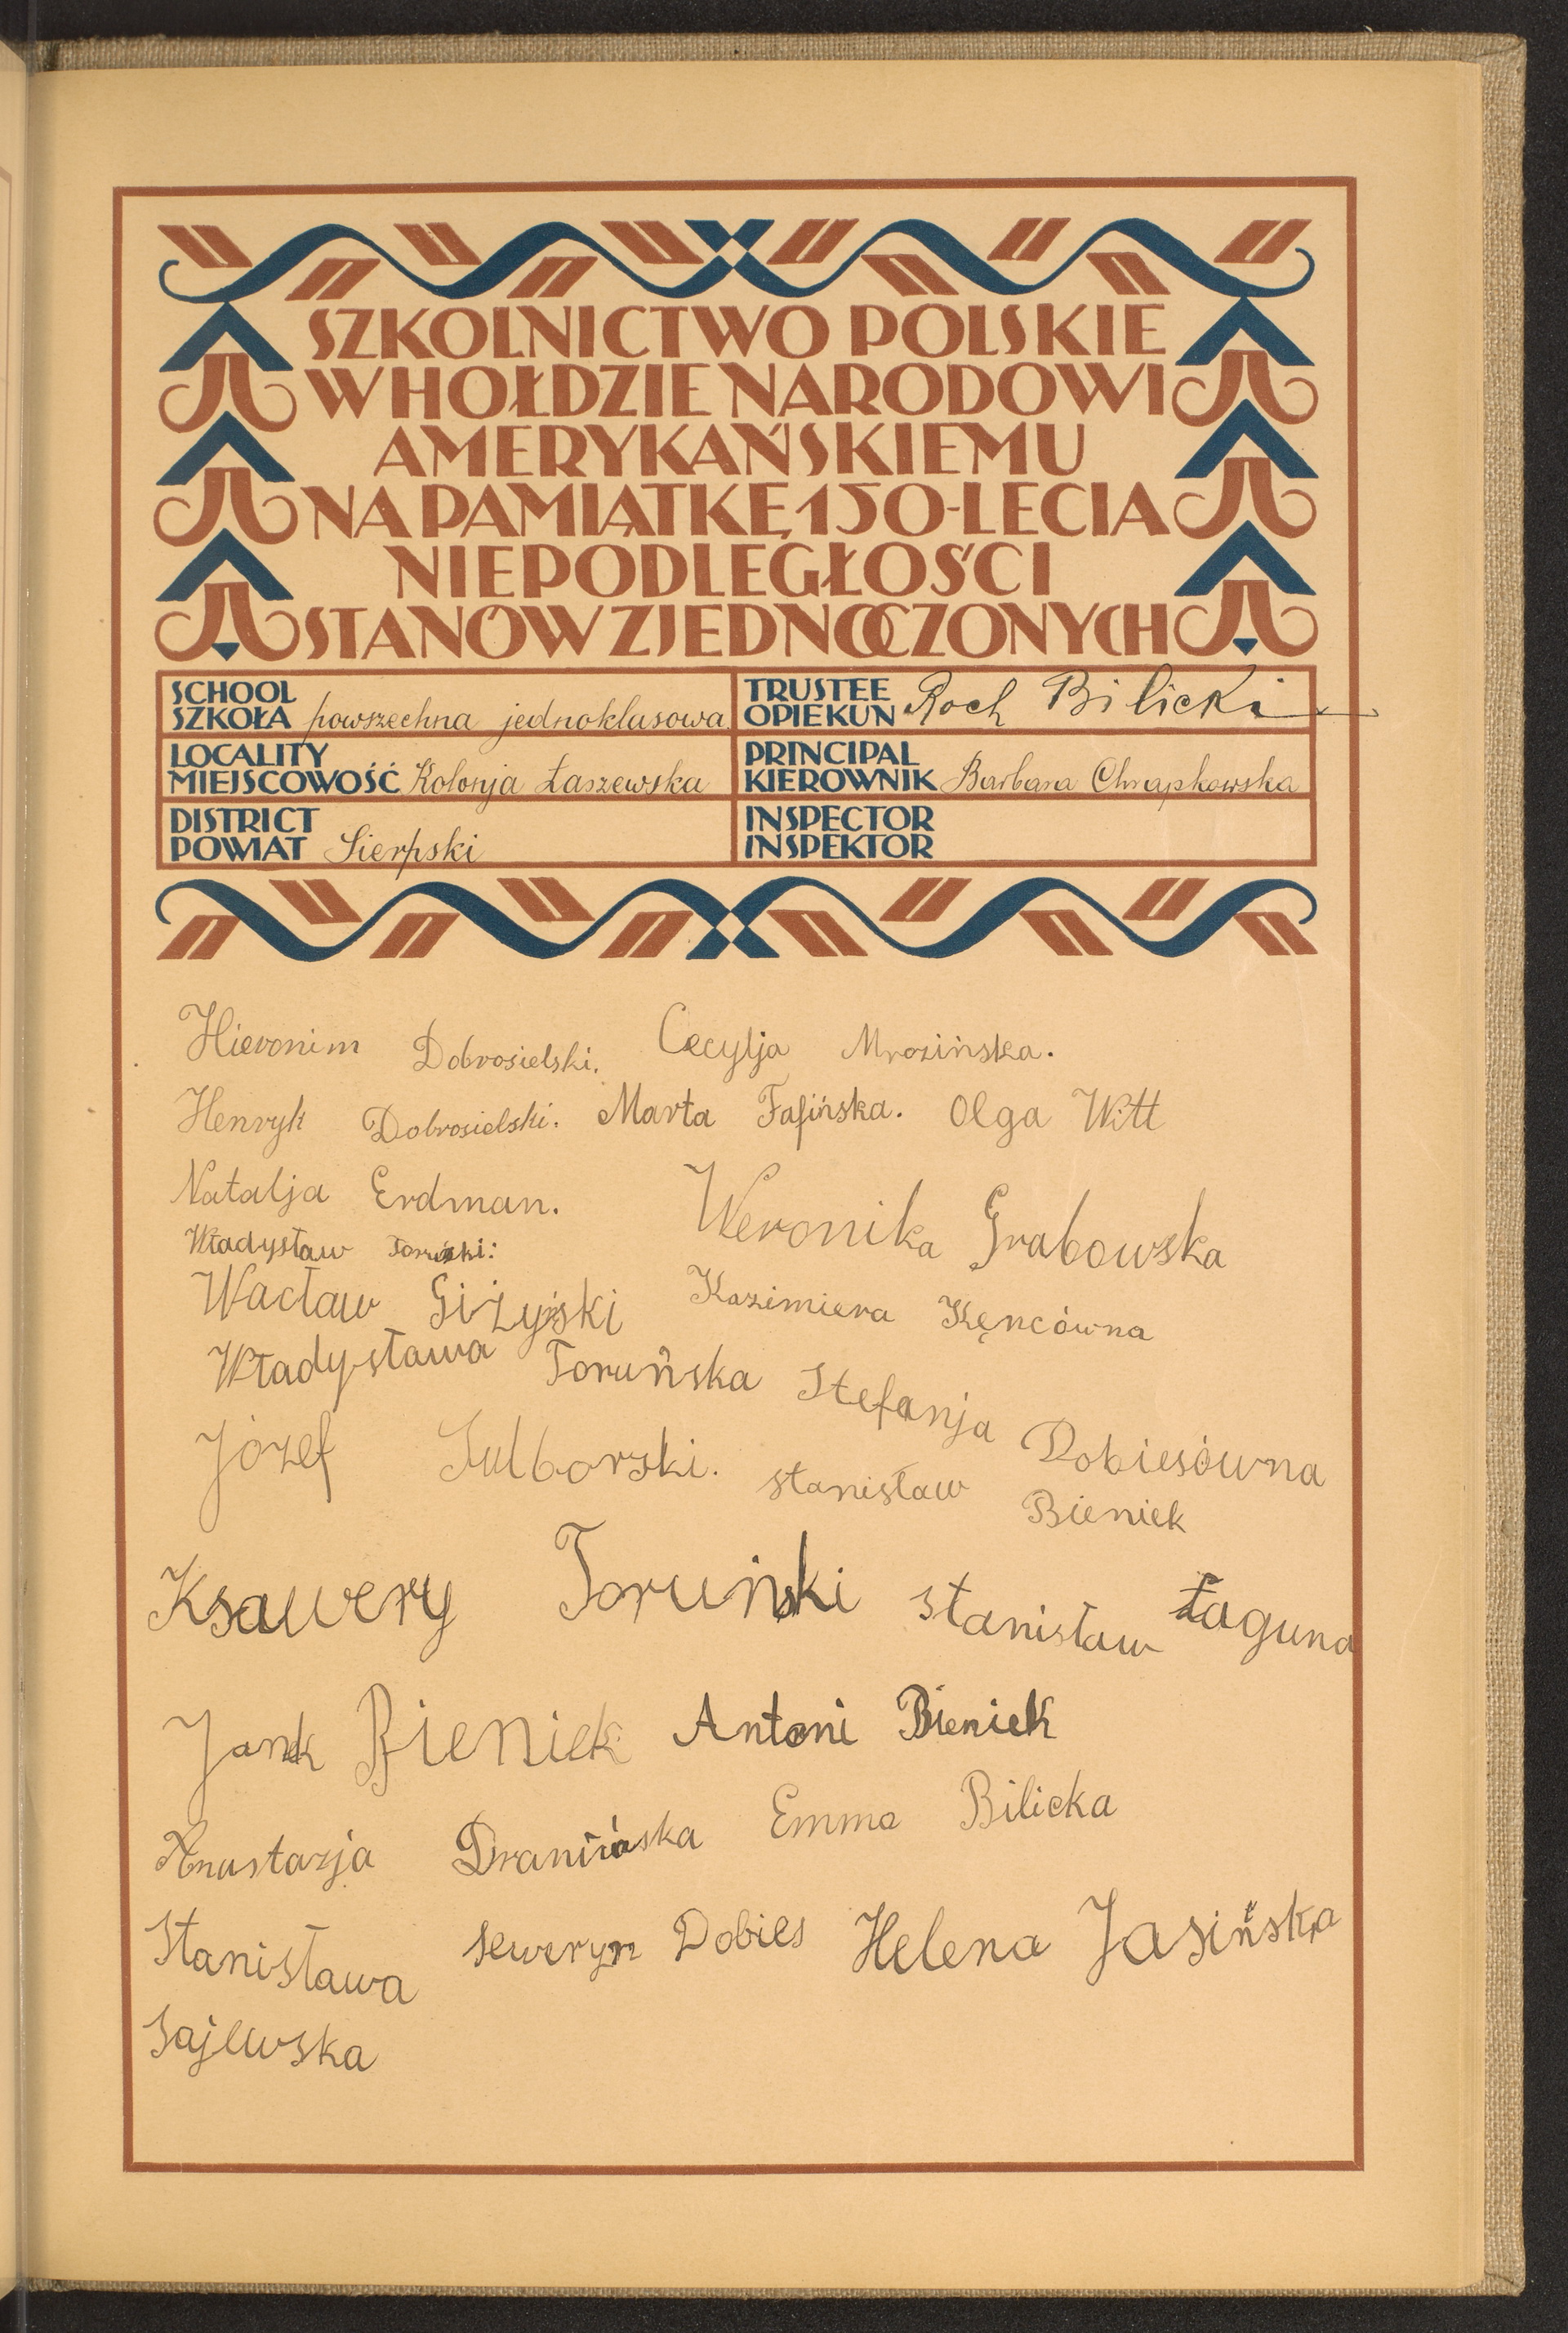 SZKOLNICTWO POLSKIE
W HOŁDZIE NARODOWI
AMERYKAŃSKIEMU
NA PAMIĄTKĘ 150-LECIA
NIEPODLEGŁOŚCI
STANÓW ZJEDNOCZONYCH
SCHOOL
SZKOŁA powszechna jednoklasowa
TRUSTEE
OPIEKUN Roch Bilicki
LOCALITY
MIEJSCOWOŚĆ Kolonja Łaszewska
PRINCIPAL
KIEROWNIK Barbara Chrapkowska
DISTRICT
POWIAT Sierpski
INSPECTOR
INSPEKTOR
Hieronim Dobrosielski. Cecylja Mrozińska.
Henryk Dobrosielski. Marta Fafińska. Olga Witt
Natalja Erdman. Weronika Grabowska
Władysław Toruński:
Wacław Giżyński Kazimiera Kęncówna
Władysława Toruńska Stefanja Dobiesówna
Józef Sulborski. stanisław Bieniek
Ksawery Toruński stanisław Łaguna
Jank Bieniek Antoni Bieniek
Anastazja Emma Bilicka
Stanisława seweryn Dobies Helena Jasińska
Sajewska